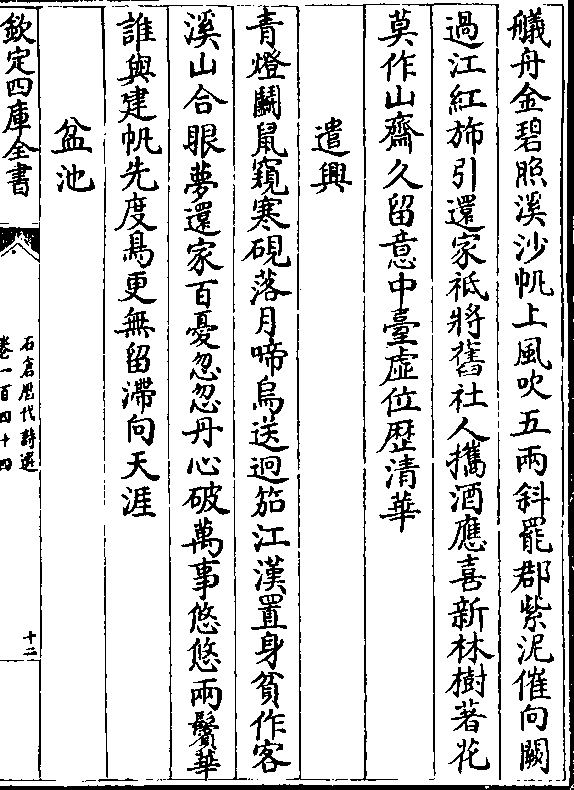 艤舟金碧照溪沙帆上風吹五兩斜罷郡紫泥催向闕
過江紅斾引還家祗將舊社人攜酒應喜新林樹著花
莫作山齋久留意中臺虛位歴清華
遣興
青燈鬬鼠窺寒硯落月啼烏送迥笳江漢置身貧作客
溪山合眼夢還家百憂忽忽丹心破萬事悠悠兩鬢華
誰與建帆先度鳥更無留滯向天涯
盆池
欽定四庫全書
石倉歴代詩選
卷一百四十四
十二